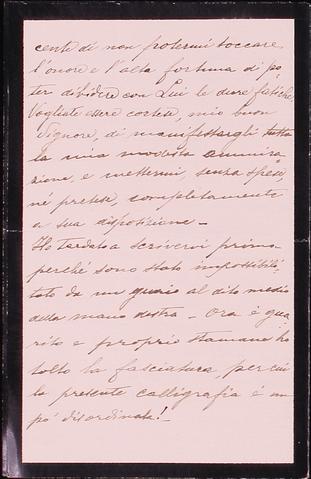 cente di non potermi toccare
l'onore e l'alta fortuna di po
ter dividere con Lui le dure fatiche.
Vogliate essere cortese, mio buon
Signore, di manifestargli tutta
la mia modesta ammira
zione, e mettermi, senza spese,
né pretese, completamente
a sua disposizione -
Ho tardato a scrivervi prima
perché sono stato impossibili,
tato da un al dito medio
della mano destra - Ora è gua
rito e proprio stamane ho
tolto la fasciatura, per cui
la presente calligrafia è un
pó disordinata! -